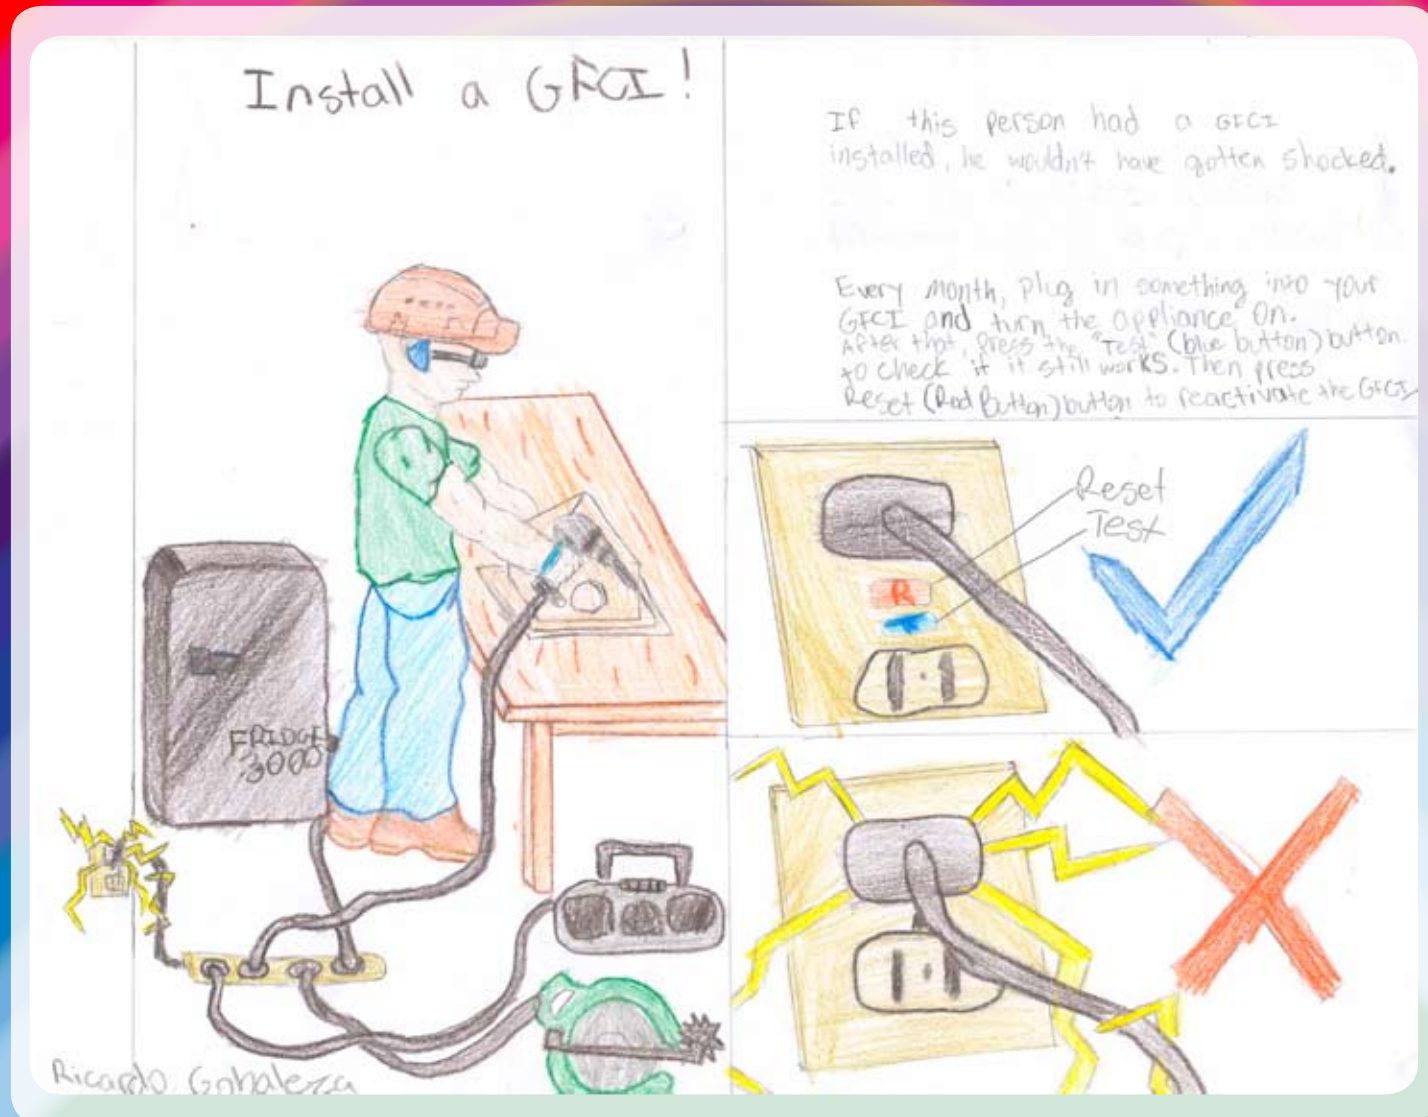 Install a GFCI!
If this person had a GFCI
installed, he wouldn't have gotten shocked.
Every month, plug in something into your
GFCI and turn the appliance on.
After that, press the "Test" (blue button) button.
to check if it still works. Then press
Reset (Red Button) button to reactivate the GFCI
Reset
Test
R
T
FRIDGE
3000
Ricardo